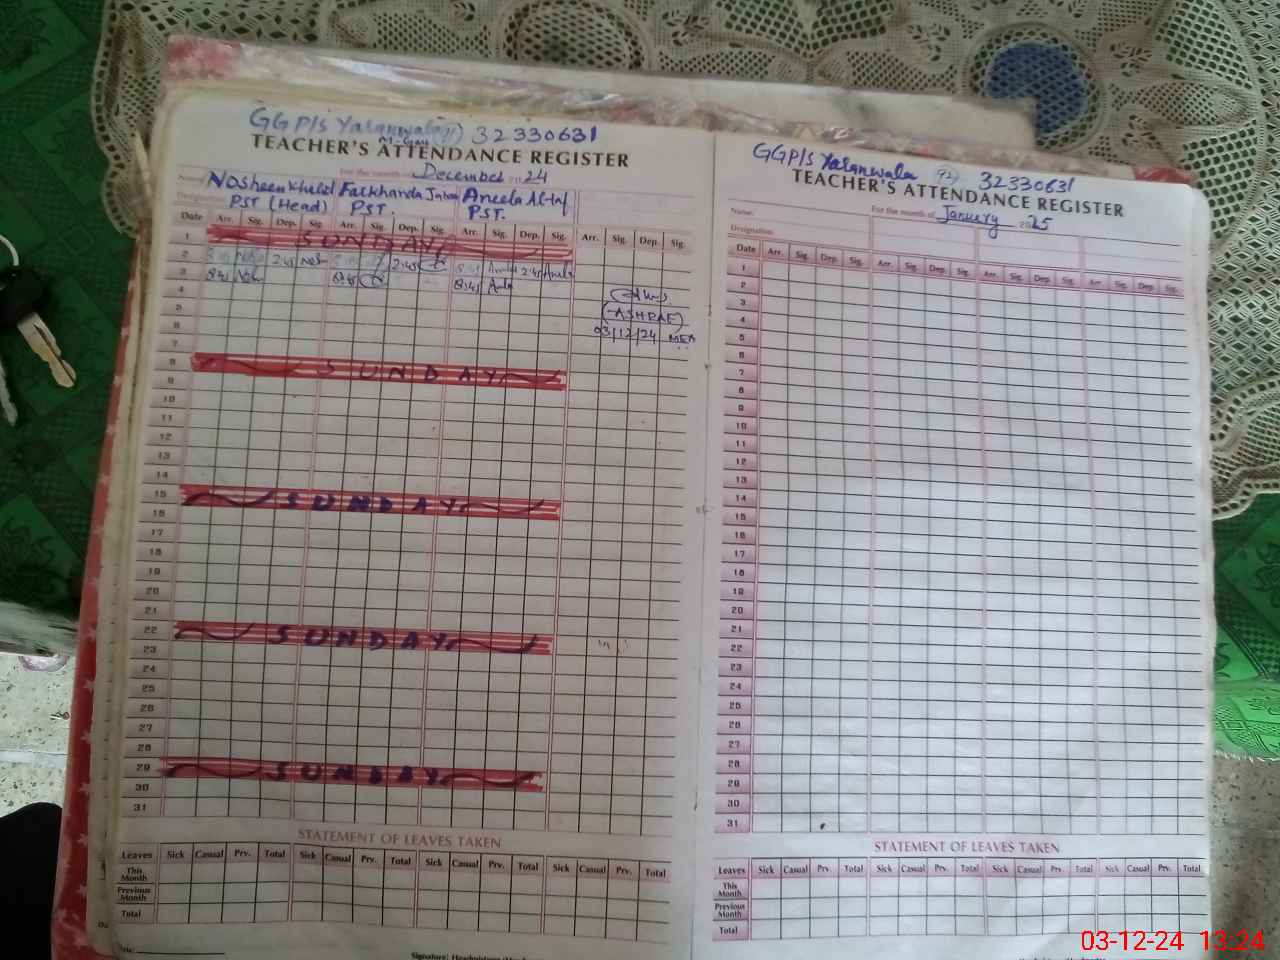 GGP/S Yaranwala (91) 32330631
TEACHER'S ATTENDANCE REGISTER
For the month of December 2024
Nosheen Khalid Farkhanda Jabeen Aneela Altaf
Designation PST (Head) PST. PST.
Date Arr. Sig. Dep. Sig. Arr. Sig. Dep. Sig. Arr. Sig. Dep. Sig. Arr. Sig. Dep. Sig.
1 SUNDAY
2 2:45 2:45 2:45
3 8:45 8:45 8:45
4
5 (ASHRAF)
6 03/12/24 MEA
7
8 SUNDAY
9
10
11
12
13
14
15 SUNDAY
16
17
18
19
20
21
22 SUNDAY
23
24
25
26
27
28
29 SUNDAY
30
31
STATEMENT OF LEAVES TAKEN
Leaves Sick Casual Prv. Total Sick Casual Prv. Total Sick Casual Prv. Total Sick Casual Prv. Total
This Month
Previous Month
Total
GGP/S Yaranwala (92) 32330631
TEACHER'S ATTENDANCE REGISTER
Name: For the month of January 2025
Designation:
Date Arr. Sig. Dep. Sig. Arr. Sig. Dep. Sig. Arr. Sig. Dep. Sig. Arr. Sig. Dep. Sig.
1
2
3
4
5
6
7
8
9
10
11
12
13
14
15
16
17
18
19
20
21
22
23
24
25
26
27
28
29
30
31
STATEMENT OF LEAVES TAKEN
Leaves Sick Casual Prv. Total Sick Casual Prv. Total Sick Casual Prv. Total Sick Casual Prv. Total
This Month
Previous Month
Total
03-12-24 13:24